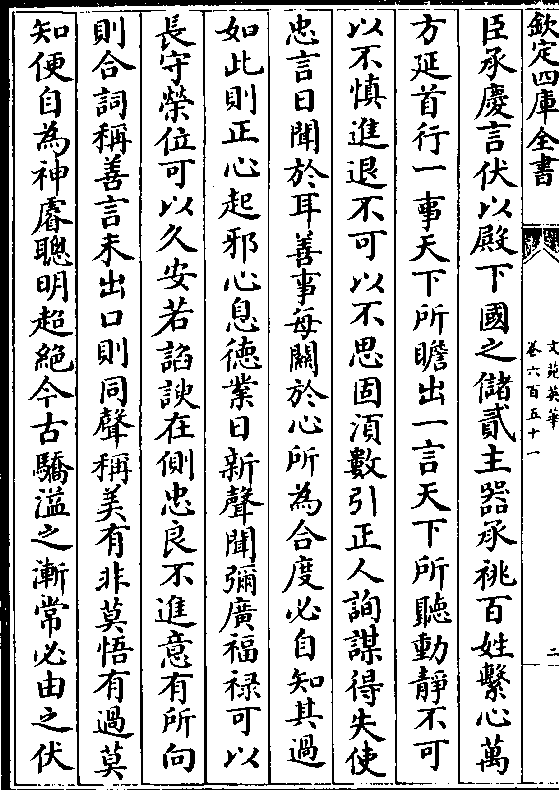 欽定四庫全書
文苑英華
卷六百五十一
二
臣承慶言伏以殿下國之儲貳主器承祧百姓繫心萬
方延首行一事天下所瞻出一言天下所聽動靜不可
以不慎進退不可以不思固湏數引正人詢謀得失使
忠言日聞於耳善事每關於心所為合度必自知其過
如此則正心起邪心息德業日新聲聞彌廣福禄可以
長守榮位可以久安若諂諛在側忠良不進意有所向
則合詞稱善言未出口則同聲稱美有非莫悟有過莫
知便自為神睿聰明超絶今古驕溢之漸常必由之伏